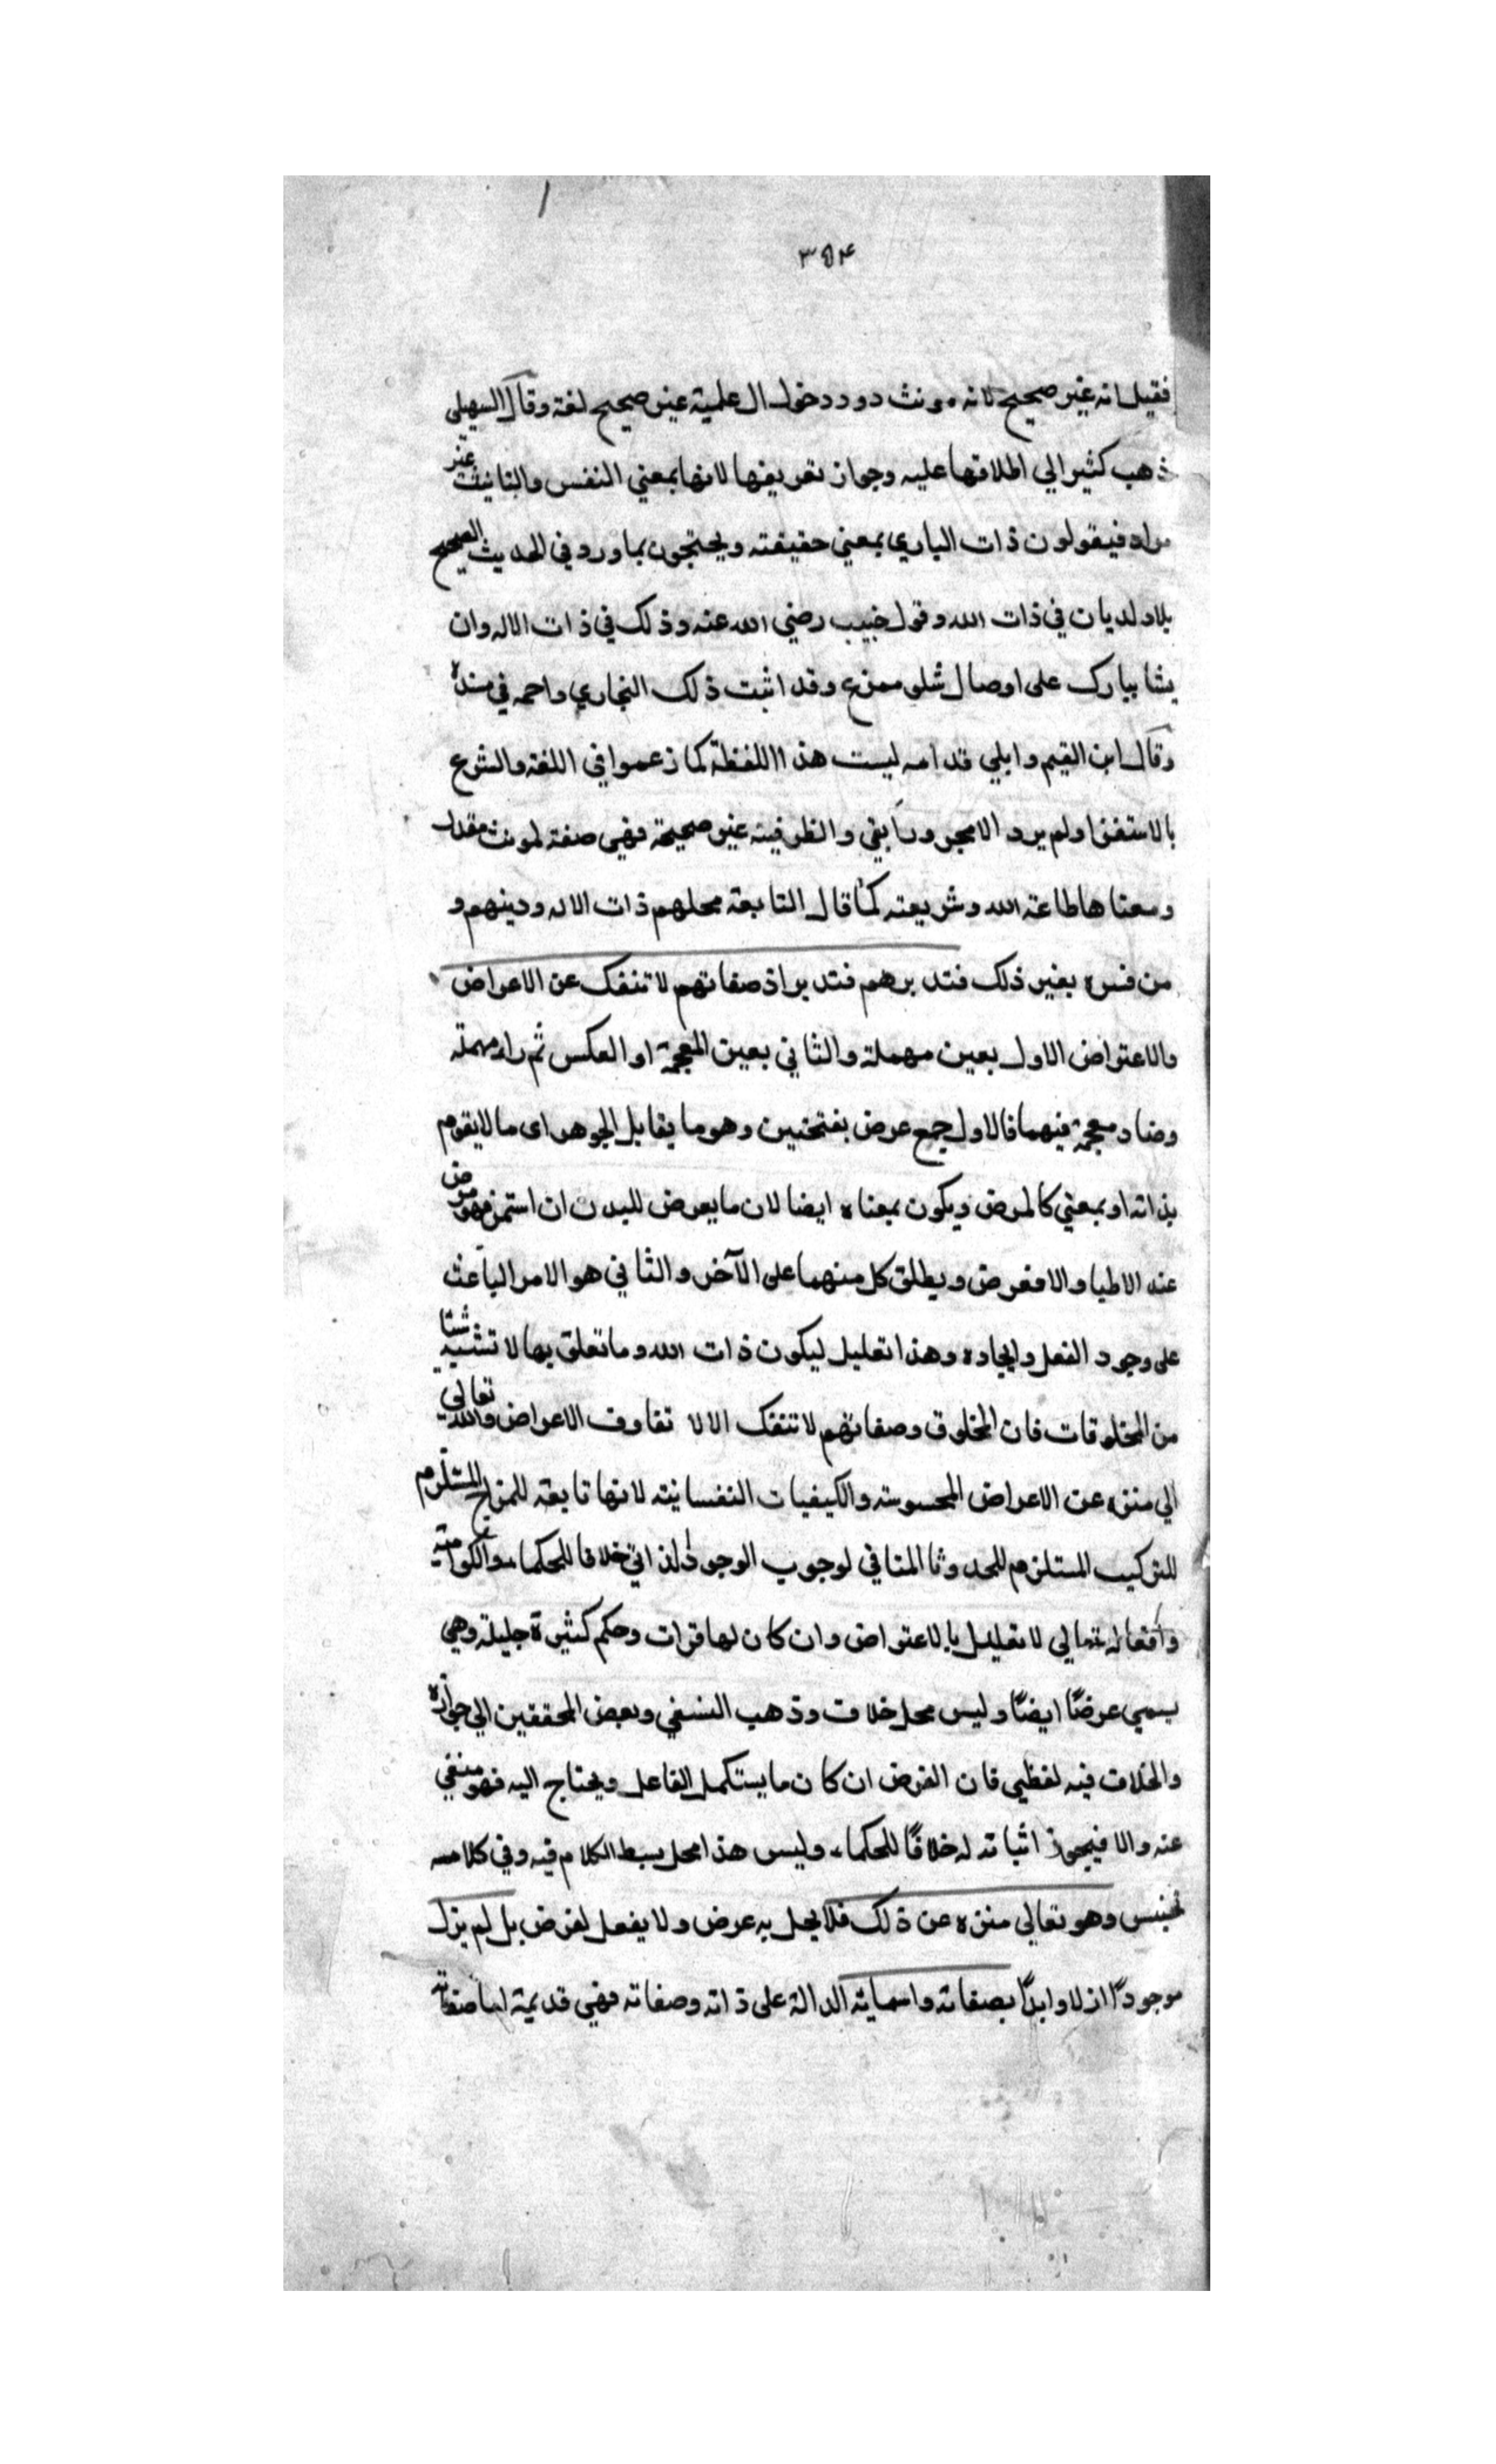 ٣٥۴
فقيل انه غير صحيح لانه مونث دورد دخول ال علمية غير صحيح لغة وقال السهيلي
ذهب كثير الي اطلاقها عليه وجواز تعريفها لانها بمعني النفس والتانيث غير
مراد فيقولون ذات الباري بمعني حقيقته ويحتجون بما ورد في الحديث الصحيح
في ذات الله وقول خبيب رضي الله عنه وذلك في ذات الاله وان
يشا يبارك على اوصال شلو ممزع وقد اثبت ذلك البخاري واحمد في مسنده
وقال ابن القيم وابلي قدامه ليست هذا اللفظة كما زعموا في اللغة والشرع
بالاستقرا ولم يرد الا مجرورا بفي والظرفية غير صحيحة فهي صفة لمونث مقدر
ومعناها طاعة الله وشريعته كما قال التابعة محلهم ذات الاله ودينهم و
من فسره بغير ذلك فتد برهم فتد بر اذ صفاتهم لا تنفك عن الاعراض
والاعتراض الاول بعين مهملة والثاني بعين المعجمة او العكس ثم راء مهملة
وضاد معجمة فيهما فالاول جمع عرض بفتحتين وهو ما يقابل الجوهر اى ما لا يقوم
بذاته او بمعني كالمرض ويكون بمعناه ايضا لان ما يعرض للبدن ان استمر فهو مرض
عند الاطبا والا فعرض ويطلق كل منهما على الآخر والثاني هو الامر الباعث
على وجود الفعل وايجاده وهذا تعليل ليكون ذات الله وما تعلق بها لا تشبه شئا
من المخلوقات فان المخلوق وصفاتهم لا تنفك الا لا تفاوف الاعراض والله تعالي
الي منزه عن الاعراض المحسوسة والكيفيات النفسانية لانها تابعة للمزاج المستلزم
للتركيب المستلزم للحدوثا المنافي لوجوب الوجود الذاتي خلافا للحكماء والكرامية
وافعاله تعالي لا تعليل بالاعتراض وان كان لها قرات وحكم كثيرة جليلة وهي
يسمي عرضًا ايضًا وليس محل خلاف وذهب النسفي وبعض المحققين الي جوازه
والخلاف فيه لفظي فان الغرض ان كان ما يستكمل الفاعل ويحتاج اليه فهو منفي
عنه والا فيجوز اثباته له خلافًا للحكماء وليس هذا محل بسط الكلام فيه وفي كلامه
تجنيس وهو تعالى منزه عن ذلك فلا يحل به عرض ولا يفعل لغرض بل لم يزل
موجودًا ازلا وابدًا بصفاته واسمايه الدالة على ذاته وصفاته فهي قديمة صفاته